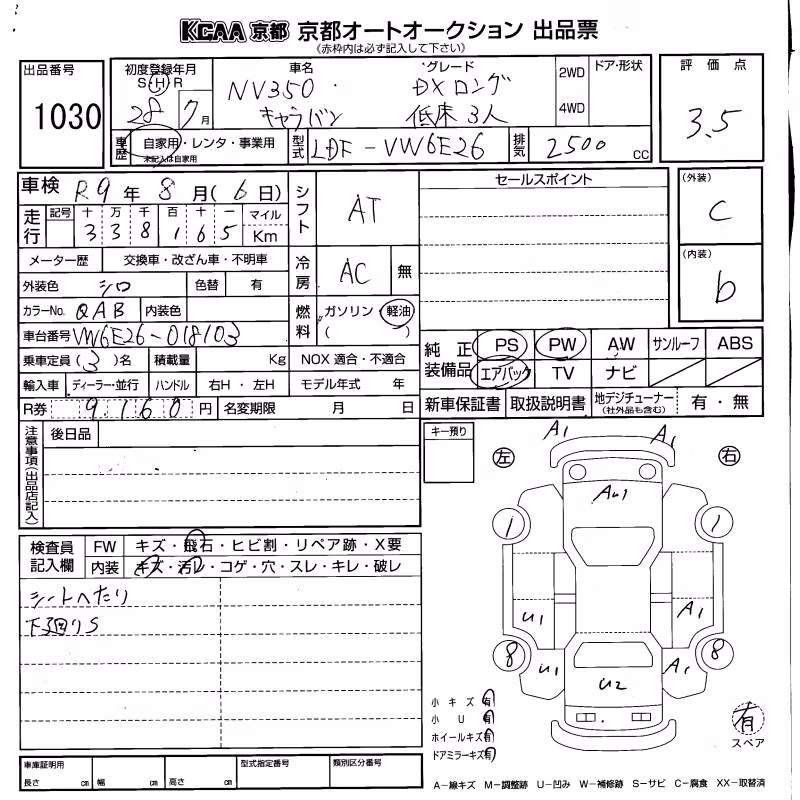 KCAA 京都 京都オートオークション 出品票
(赤枠内は必ず記入して下さい)
出品番号
1030
初度登録年月
S・H・R
28年 7月
車名
NV350
キャラバン
グレード
DXロング
低床 3人
2WD
4WD
ドア・形状
評価点
3.5
車歴
自家用・レンタ・事業用
未記入は自家用
型式
LDF-VW6E26
排気
2500 cc
車検 R9年 8月(6日)
走行
記号 十 万 千 百 十 一 マイル
3 3 8 1 6 5 Km
シフト
AT
メーター歴 交換車・改ざん車・不明車
外装色 シロ 色替 有
冷房
AC 無
カラーNo. QAB 内装色
燃料
ガソリン・軽油
( )
車台番号 VW6E26-018103
乗車定員(3)名 積載量 Kg NOX 適合・不適合
輸入車 ディーラー・並行 ハンドル 右H・左H モデル年式 年
R券 9,160円 名変期限 月 日
セールスポイント
(外装)
C
(内装)
b
純正装備品
PS PW AW サンルーフ ABS
エアバック TV ナビ
新車保証書 取扱説明書 地デジチューナー(社外品も含む) 有・無
注意事項(出品店記入)
後日品
キー預り
左
右
A1 A1
AU1
1 1
U1 A1
8 8
U1 A1
U2
検査員記入欄
FW キズ・飛石・ヒビ割・リペア跡・X要
内装 キズ・汚レ・コゲ・穴・スレ・キレ・破レ
シートへたり
下廻りS
小キズ 有
小U 有
ホイールキズ 有
ドアミラーキズ 有
有
スペア
車庫証明用
長さ cm 幅 cm 高さ cm
型式指定番号
類別区分番号
A-線キズ M-調整跡 U-凹み W-補修跡 S-サビ C-腐食 XX-取替済